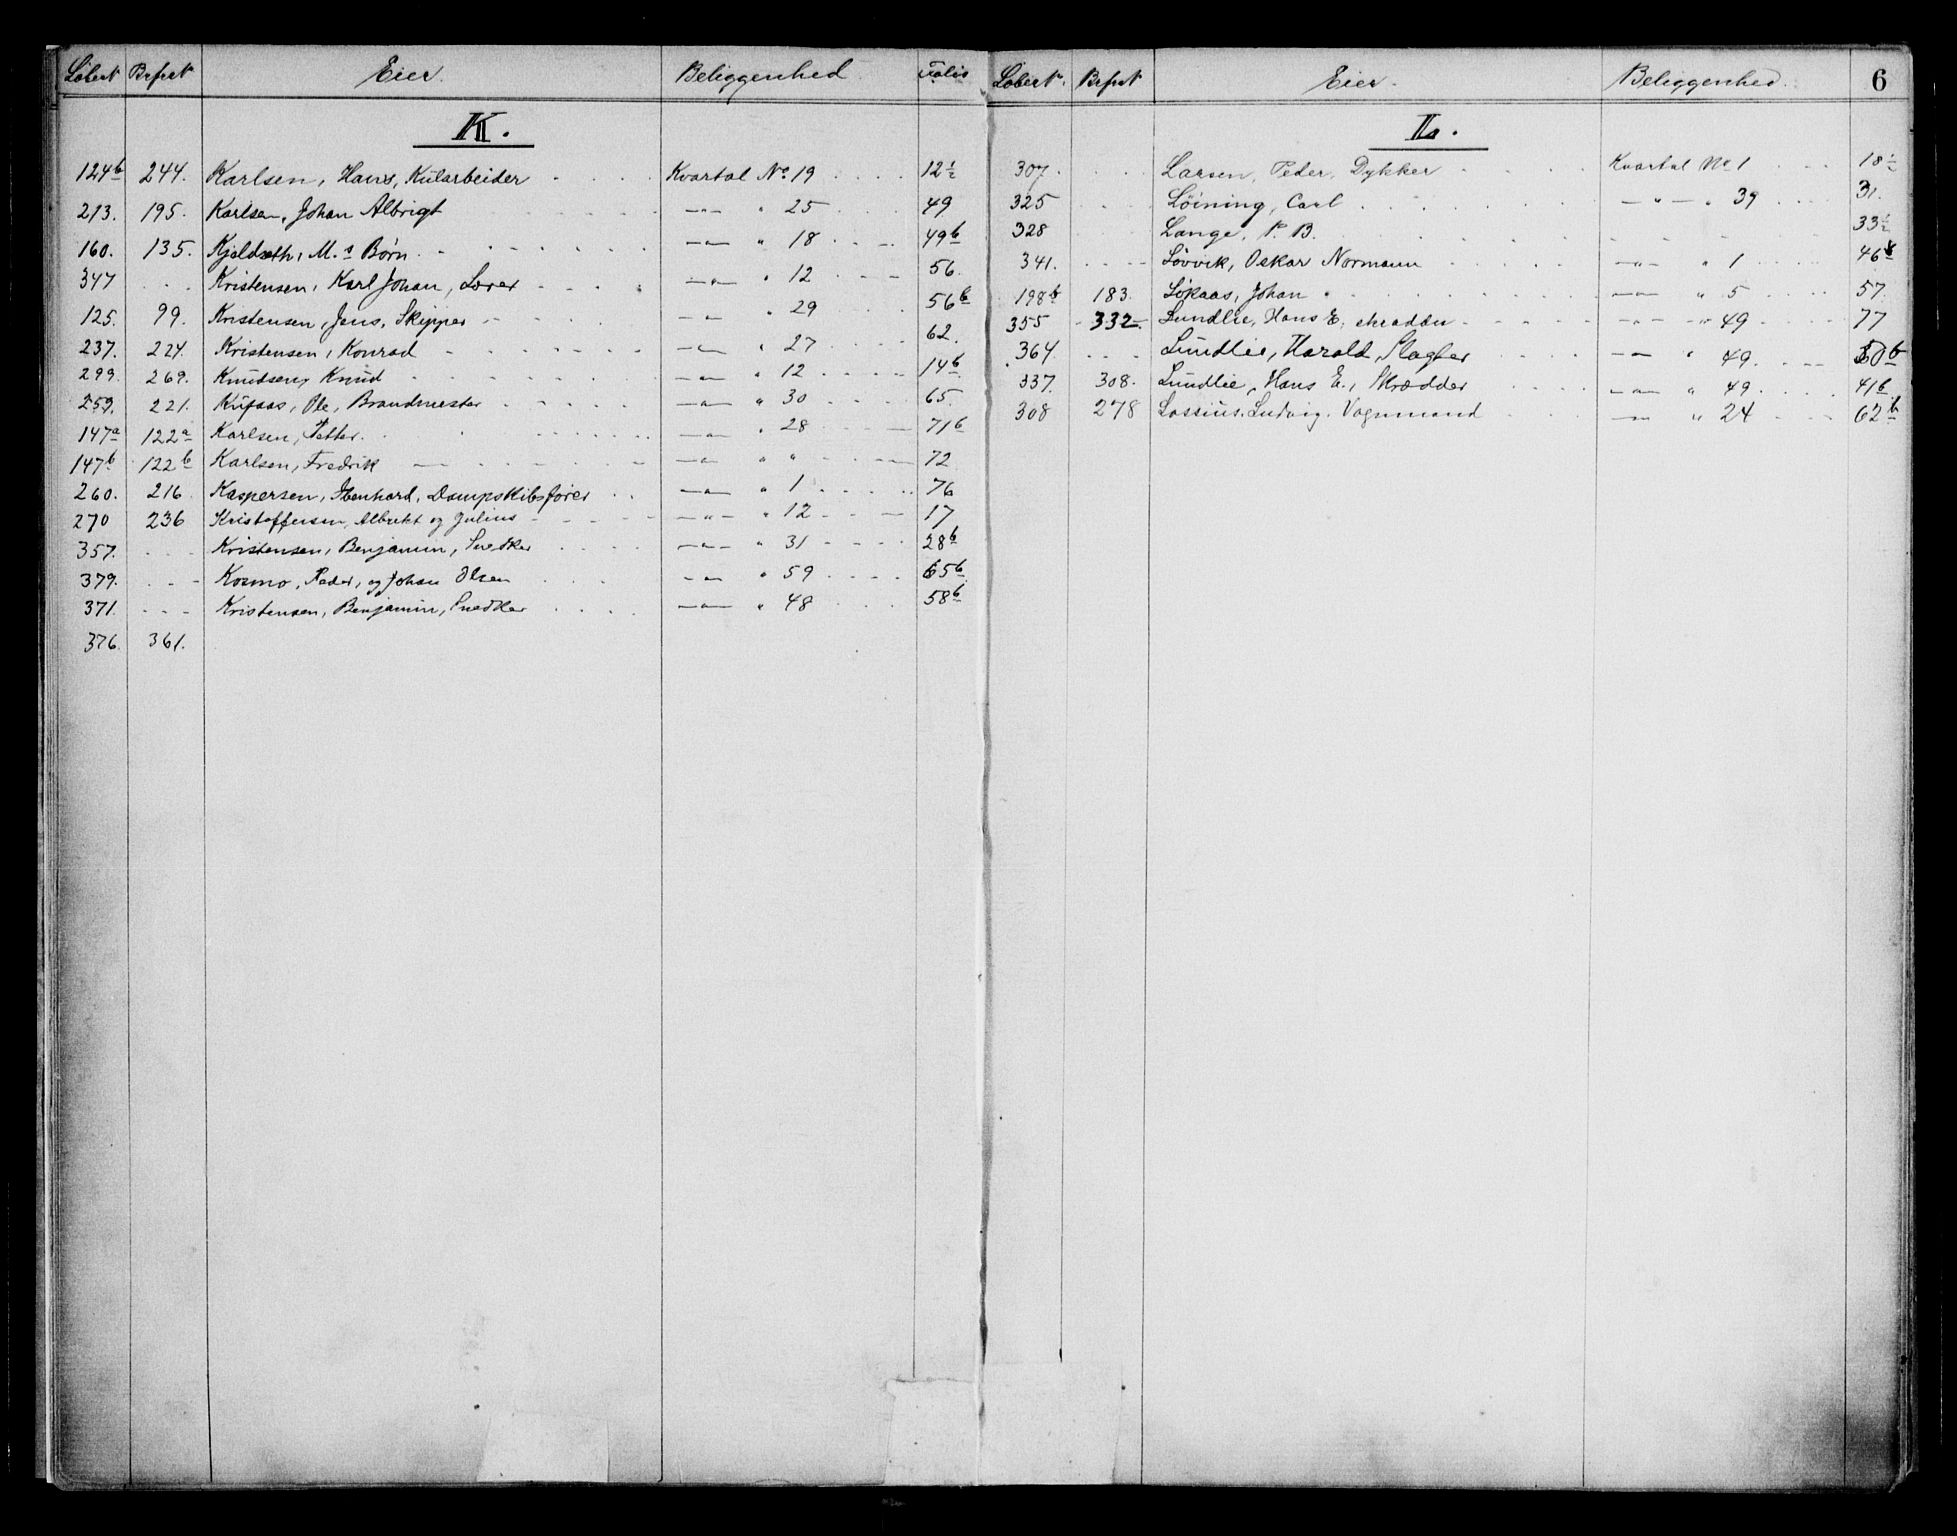 Løbe № Brfrst № Eier. Beliggenhed Folio
K.
124b 244. Karlsen, Hans, Kularbeider Kvartal № 19 12½
213. 195. Karlsen, Johan Albrigt —"— " 25 49
160. 135. Kjeldseth, M.s Børn —"— " 18 49b
347 Kristensen, Karl Johan, Lærer —"— " 12 56.
125. 99. Kristensen, Jens, Skipper —"— " 29 56b
237. 224. Kristensen, Konrad —"— " 27 62.
299. 269. Knudsen, Knud —"— " 12 14b
259. 221. Kufaas, Ole, Brandmester —"— " 30 65
147a 122a Karlsen, Petter. —"— " 28 71b
147b 122b Karlsen, Fredrik —"— " " 72
260. 216 Kaspersen, Dampskibsfører —"— " 1 76
270 236 Kristoffersen, Albrekt og Julius —"— " 12 17
357. Kristensen, Benjamin, Snedker —"— " 31 28b
379. Kosmo, Peder, og Johan Olsen —"— " 59 65b
371. Kristensen, Benjamin, Snedker —"— " 48 58b
376. 361.
Løbe №. Brfrst № Eier. Beliggenhed. 6
L.
307. Larsen, Peder, Dykker Kvartal № 1 18½
325 Løining, Carl —"— " 39 31.
328 Lange, P. B. 33½
341. Løvvik, Oskar Normann —"— " 1 46b
198b 183. Løkaas, Johan —"— " 5 57.
355 332 Lundlie, Hans E, skrædder —"— " 49 77
364 Lundlie, Harald, Slagter —"— " 49. 50b
337. 308. Lundlie, Hans E., Skrædder —"— " 49. 41b
308 278 Lossius, Ludvig. Vognmand —"— " 24 62b